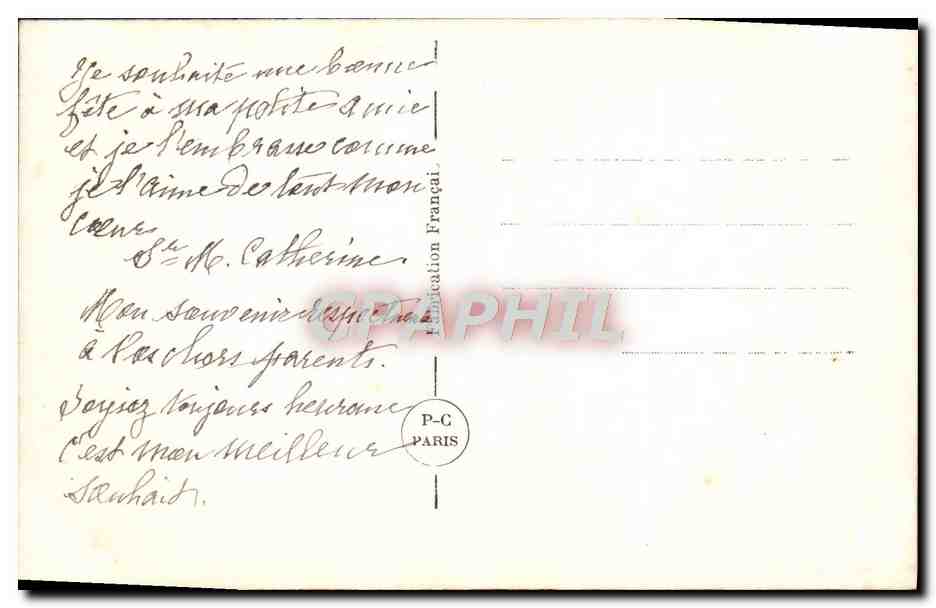 Je souhaite une bonne
fête à ma petite amie
et je l'embrasse comme
je l'aime de tout mon
cœur
Sr M. Catherine.
Mon souvenir respectueux
à vos chers parents.
Soyez toujours heureuse
c'est mon meilleur
souhait.
Fabrication Françai
CPAPHIL
P-C
PARIS